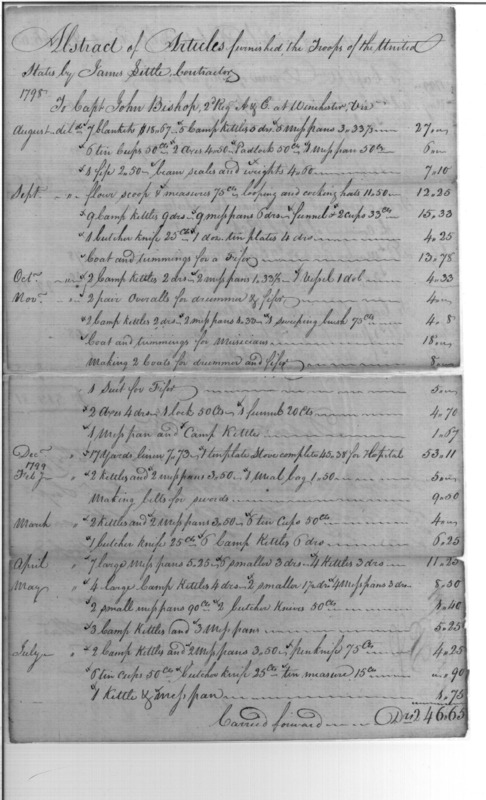 Abstract of Articles furnished the Troops of the United
States by James Little Contractor
1798
To Capt John Bishop, 2d Reg A & E. at Winchester, Vir
August del dd 7 blankets $18.67 5 Camp Kettles 5 drs 5 Mess pans 3.33⅓ 27
6 tin Cups 50 Cts 2 Axes 4.50 Padlock 50 Cts 1 Messpan 50 Cts 6
1 fife 2.50 beam scales and weights 4.60 7.10
Sept flour scoop & measures 75 Cts looping and cocking hats 11.50 12.25
9 Camp Kettles 9 drs 9 messpans 6 drs funnel & 2 cups 33 Cts 15.33
1 butcher knife 25 Cts 1 doz tin plates 4 drs 4.25
Coat and trimmings for a Fifer 13.78
Octr 2 Camp Kettles 2 drs 2 messpans 1.33⅓ 1 Vessel 1 dol 4.33
Novr 2 pair Overalls for drummer & fifer 4
2 Camp Kettles 2 drs 2 messpans 1.33 1 sweeping brush 75 Cts 4.8
Coat and trimmings for Musicians 18
Making 2 Coats for drummer and fifer 8
1 Suit for Fifer 5
2 Axes 4 drs 1 lock 50 Cts 1 funnel 20 Cts 4.70
1 Mess pan and Camp Kettle 1.67
Decr 17 Yards linen 7.73 1 tenplate Stove complete 45.38 for Hospital 53.11
1799
Feby 2 Kettles and 2 messpans 3.50 1 Meal bag 1.50 5
Making belts for swords 9.50
March 2 Kettles and 2 Mess pans 3.50 6 tin Cups 50 Cts 4
1 butcher knife 25 Cts 6 Camp Kettles 6 drs 6.25
April 7 large Mess pans 5.25 5 smaller 3 drs 4 Kettles 3 drs 11.25
May 4 large Camp Kettles 4 drs 2 smaller 1½ drs 4 Mess pans 3 drs 8.50
2 small mess pans 90 Cts 2 butcher Knives 50 Cts 1.40
3 Camp Kettles and 3 Mess pans 5.25
July 2 Camp Kettles and 2 Mess pans 3.50 penknife 75 Cts 4.25
6 tin Cups 50 Cts butcher knife 25 Cts tin measure 15 Cts 90
1 Kettle & mess pan 1.75
Carried forward Drs 246.65